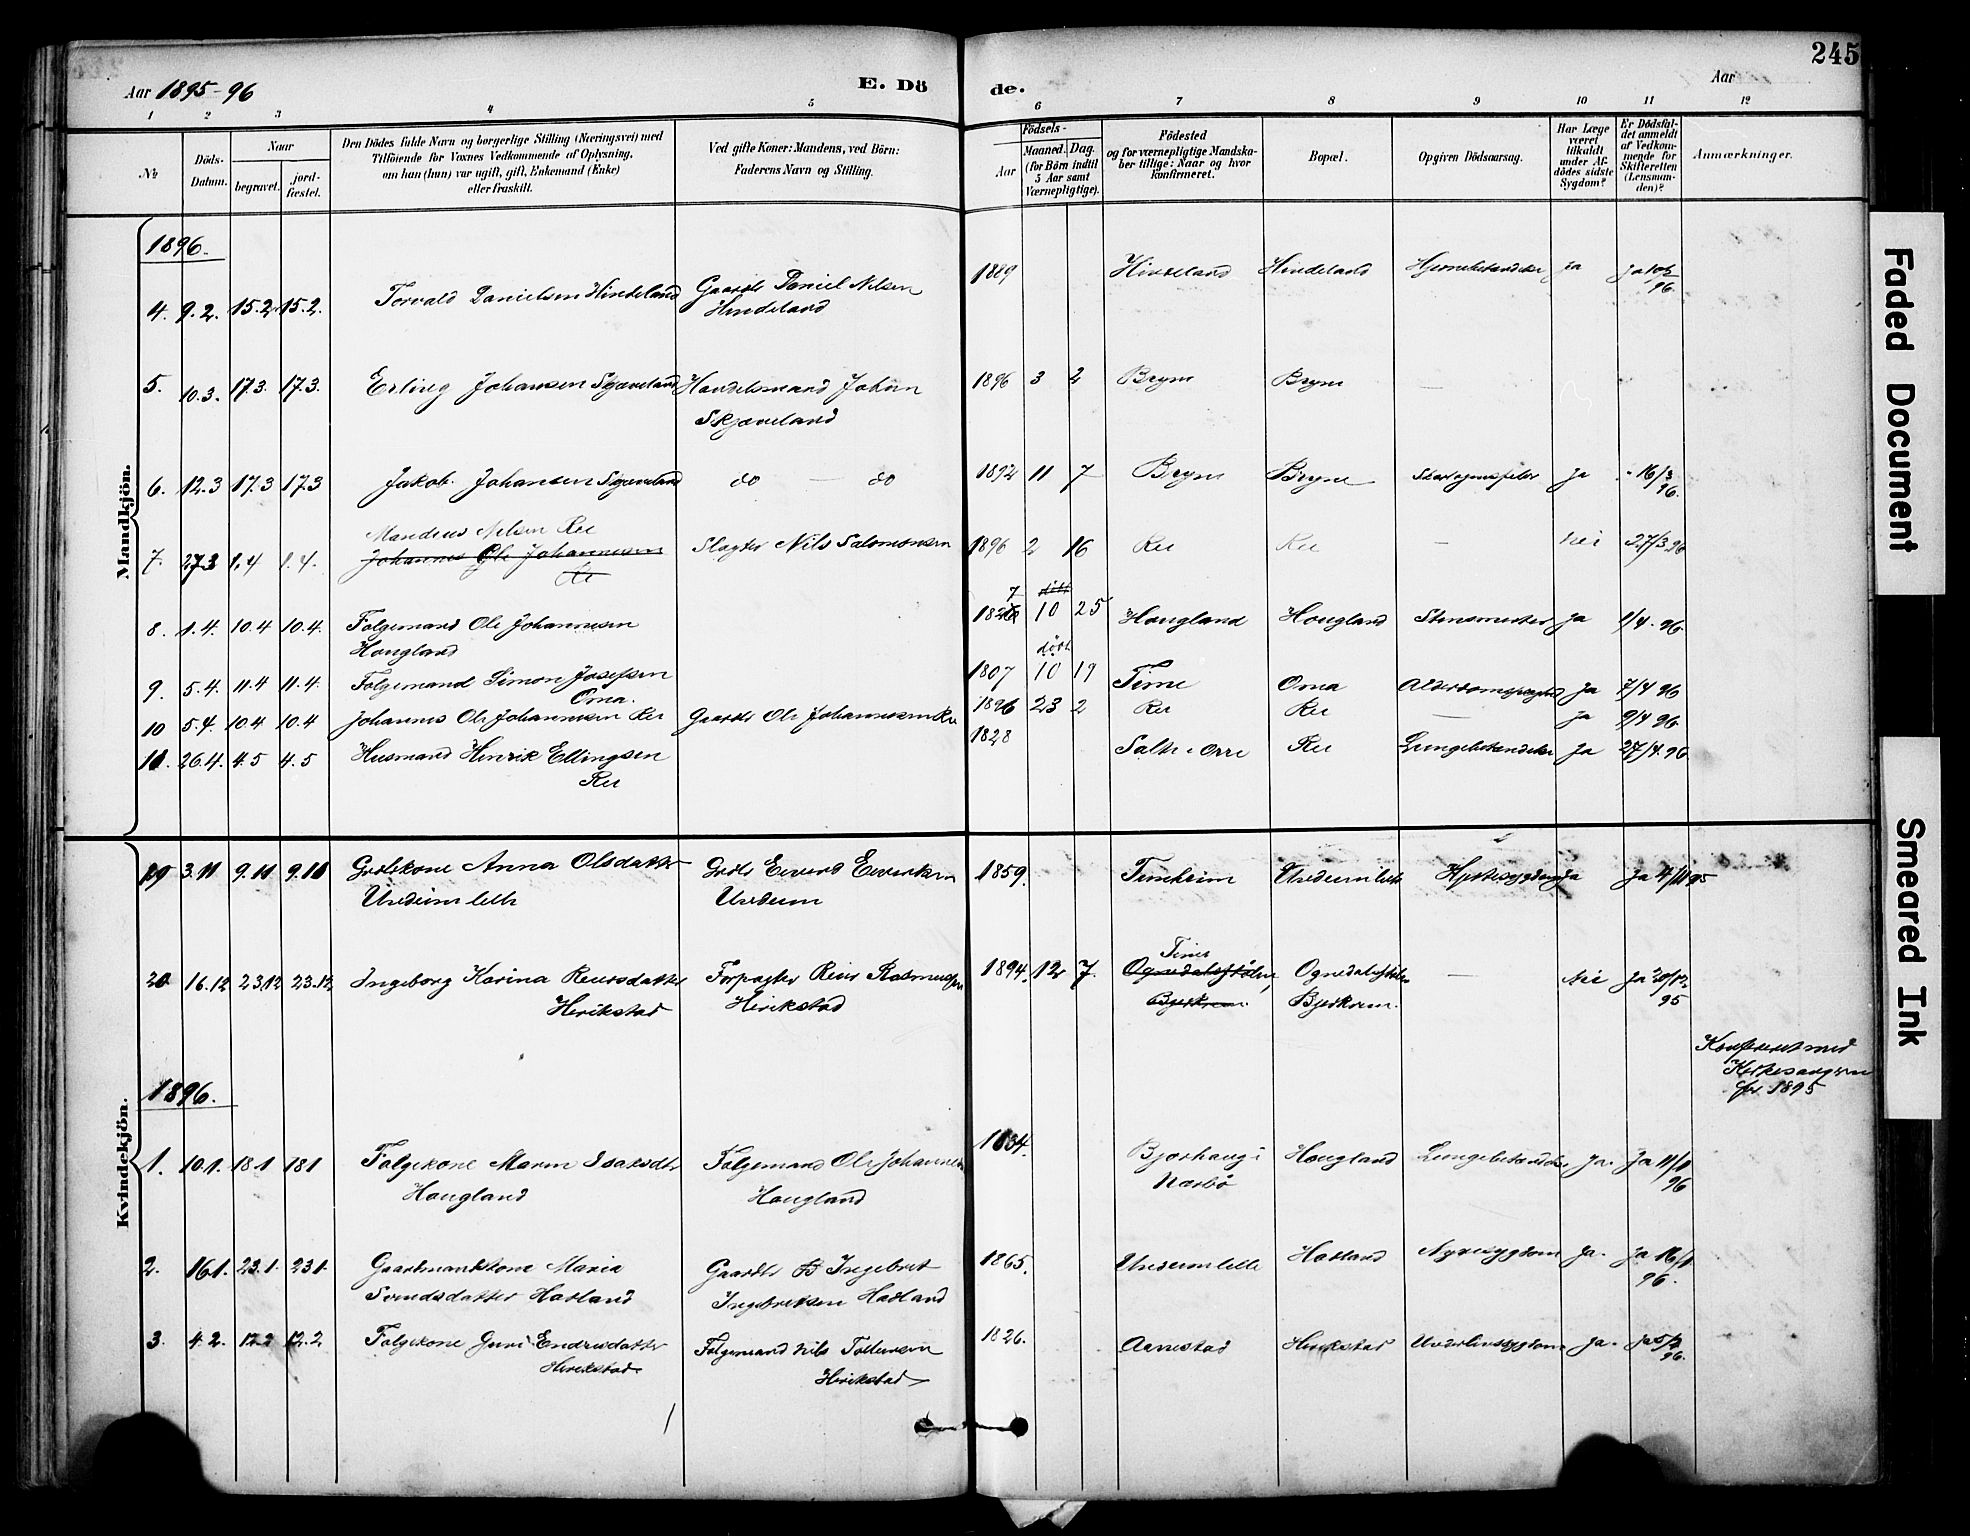 245
Aar 1895-96
E. Dö
de.
Aar
1 2 3 4 5 6 7 8 9 10 11 12
№
Döds-Datum.
Naar
begravet.
jord-fæstet.
Den Dödes fulde Navn og borgerlige Stilling (Næringsvei) med
Tilföiende for Voxnes Vedkommende af Oplysning,
om han (hun) var ugift, gift, Enkemand (Enke)
eller fraskilt.
Ved gifte Koner: Mandens, ved Börn:
Faderens Navn og Stilling.
Födsels-
Aar
Maaned. Dag.
(for Börn indtil
5 Aar samt
Værnepligtige).
Födested
og for værnepligtige Mandska-
ber tillige: Naar og hvor
konfirmeret.
Bopæl.
Opgiven Dödsaarsag.
Har Læge
været
tilkaldt
under Af-
dödes sidste
Sygdom?
Er Dödsfal-
det anmeldt
af Vedkom-
mende for
Skifteretten
(Lensman-
den)?
Anmærkninger.
Mandkjön.
1896.
4. 9.2. 15.2 15.2. Torvald Danielsen Hindeland Gaardb Daniel Nilsen 1889 Hindeland Hindeland Hjernebetændelse ja
Hindeland 96.
5. 10.3. 17.3. 17.3. Erling Johansen Skjæveland Handelsmand Johan 1896 3 2 Bryne Bryne —
Skjæveland
6. 12.3 17.3 17.3 Jakob Johansen Skjæveland do — do 1892 11 7 Bryne Bryne ja 16/3
96.
Mandius Nilsen Ree
7. 27.3 1.4 1.4. Johannes Ole Johannesen Slagter Nils Salomonsen 1896 2 16 Ree Ree — nei 27/3 96
Re
8. 1.4. 10.4 10.4. Folgemand Ole Johannesen 10 25 Haugland Haugland ja 1/4. 96
Haugland
9. 5.4. 11.4 11.4. Folgemand Simon Josefsen 1807 10 19 Time Oma ja 7/4 96
Oma.
10 5.4. 10.4 10.4 Johannes Ole Johannesen Ree Gaardb Ole Johannesen Ree 1896 23 2 Ree Ree — ja 9/4 96
11. 26.4. 4.5 4.5 Husmand Henrik Ellingsen 1828 Salte i Orre Ree Lungebetændelse ja 27/4. 96
Ree
Kvindekjön.
19 3.11 9.11 9.11 Grdbkone Anna Olsdatter Grdb Eivind 1859. Timeheim Undeimlille ja Ja 4/11 95
Undeim lille Undeim
Time
20 16.12 23.12 23.12 Ingeborg Karina Reiersdatter Forpagter Reier Rasmussen 1894. 12 7. Ognedalsstølen, Ognedalsstølen — Nei Ja 20/12
Herikstad Herikstad Bjerkrem. Bjerkrem. 95
Konfereret med
Kirkesangeren
for 1895
1896.
1. 10.1. 18.1 18.1 Folgekone Maren Isaksdtr Folgemand Ole Johannesen 1834. Bjorhaug i Haugland Lungebetændelse ja. Ja 11/1
Haugland Haugland Nærbø 96
2. 16.1. 23.1. 23.1. Gaardmandskone Maria Gaardb Ingebret 1865. Undeimlille Hatland Nyresygdom ja. ja 16/1
Svendsdatter Hatland Ingebretsen Hatland 96.
3. 4.2. 12.2 12.2 Folgekone Guri Endresdatter Folgemand Nils Tollersen 1826. Aanestad Herikstad Underlivssygdom ja. ja 5/2
Herikstad Herikstad 96.
Faded Document
Smeared Ink